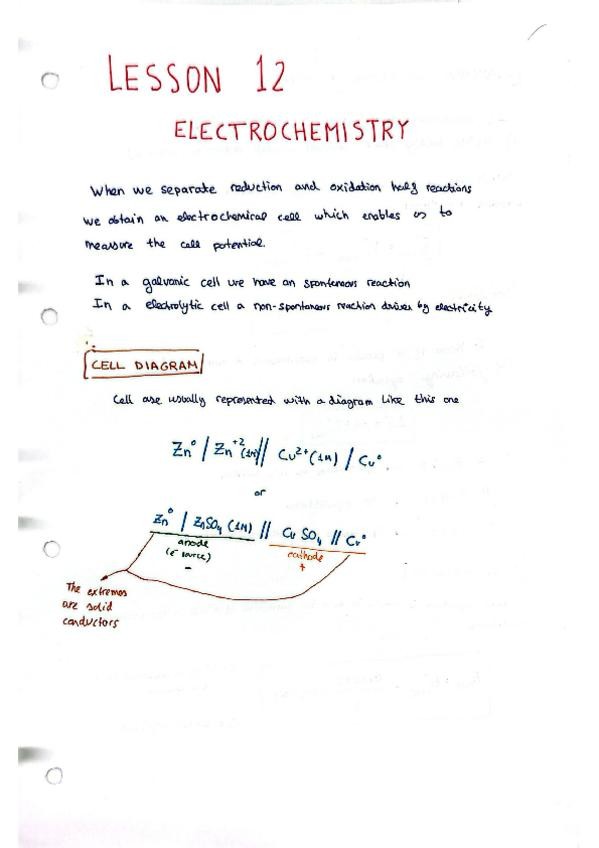 LESSON 12
ELECTROCHEMISTRY
When we separate reduction and oxidation half reactions
we obtain an electrochemical cell which enables us to
measure the cell potential.
In a galvanic cell we have an spontaneous reaction
In a electrolytic cell a non-spontaneous reaction driven by electricity
CELL DIAGRAM
Cell are usually represented with a diagram like this one
Zn° / Zn⁺² (1M) // Cu²⁺ (1M) / Cu°.
or
Zn° / ZnSO₄ (1M) // CuSO₄ // Cu°
anode cathode
(e⁻ source) +
-
The extremes
are solid
conductors